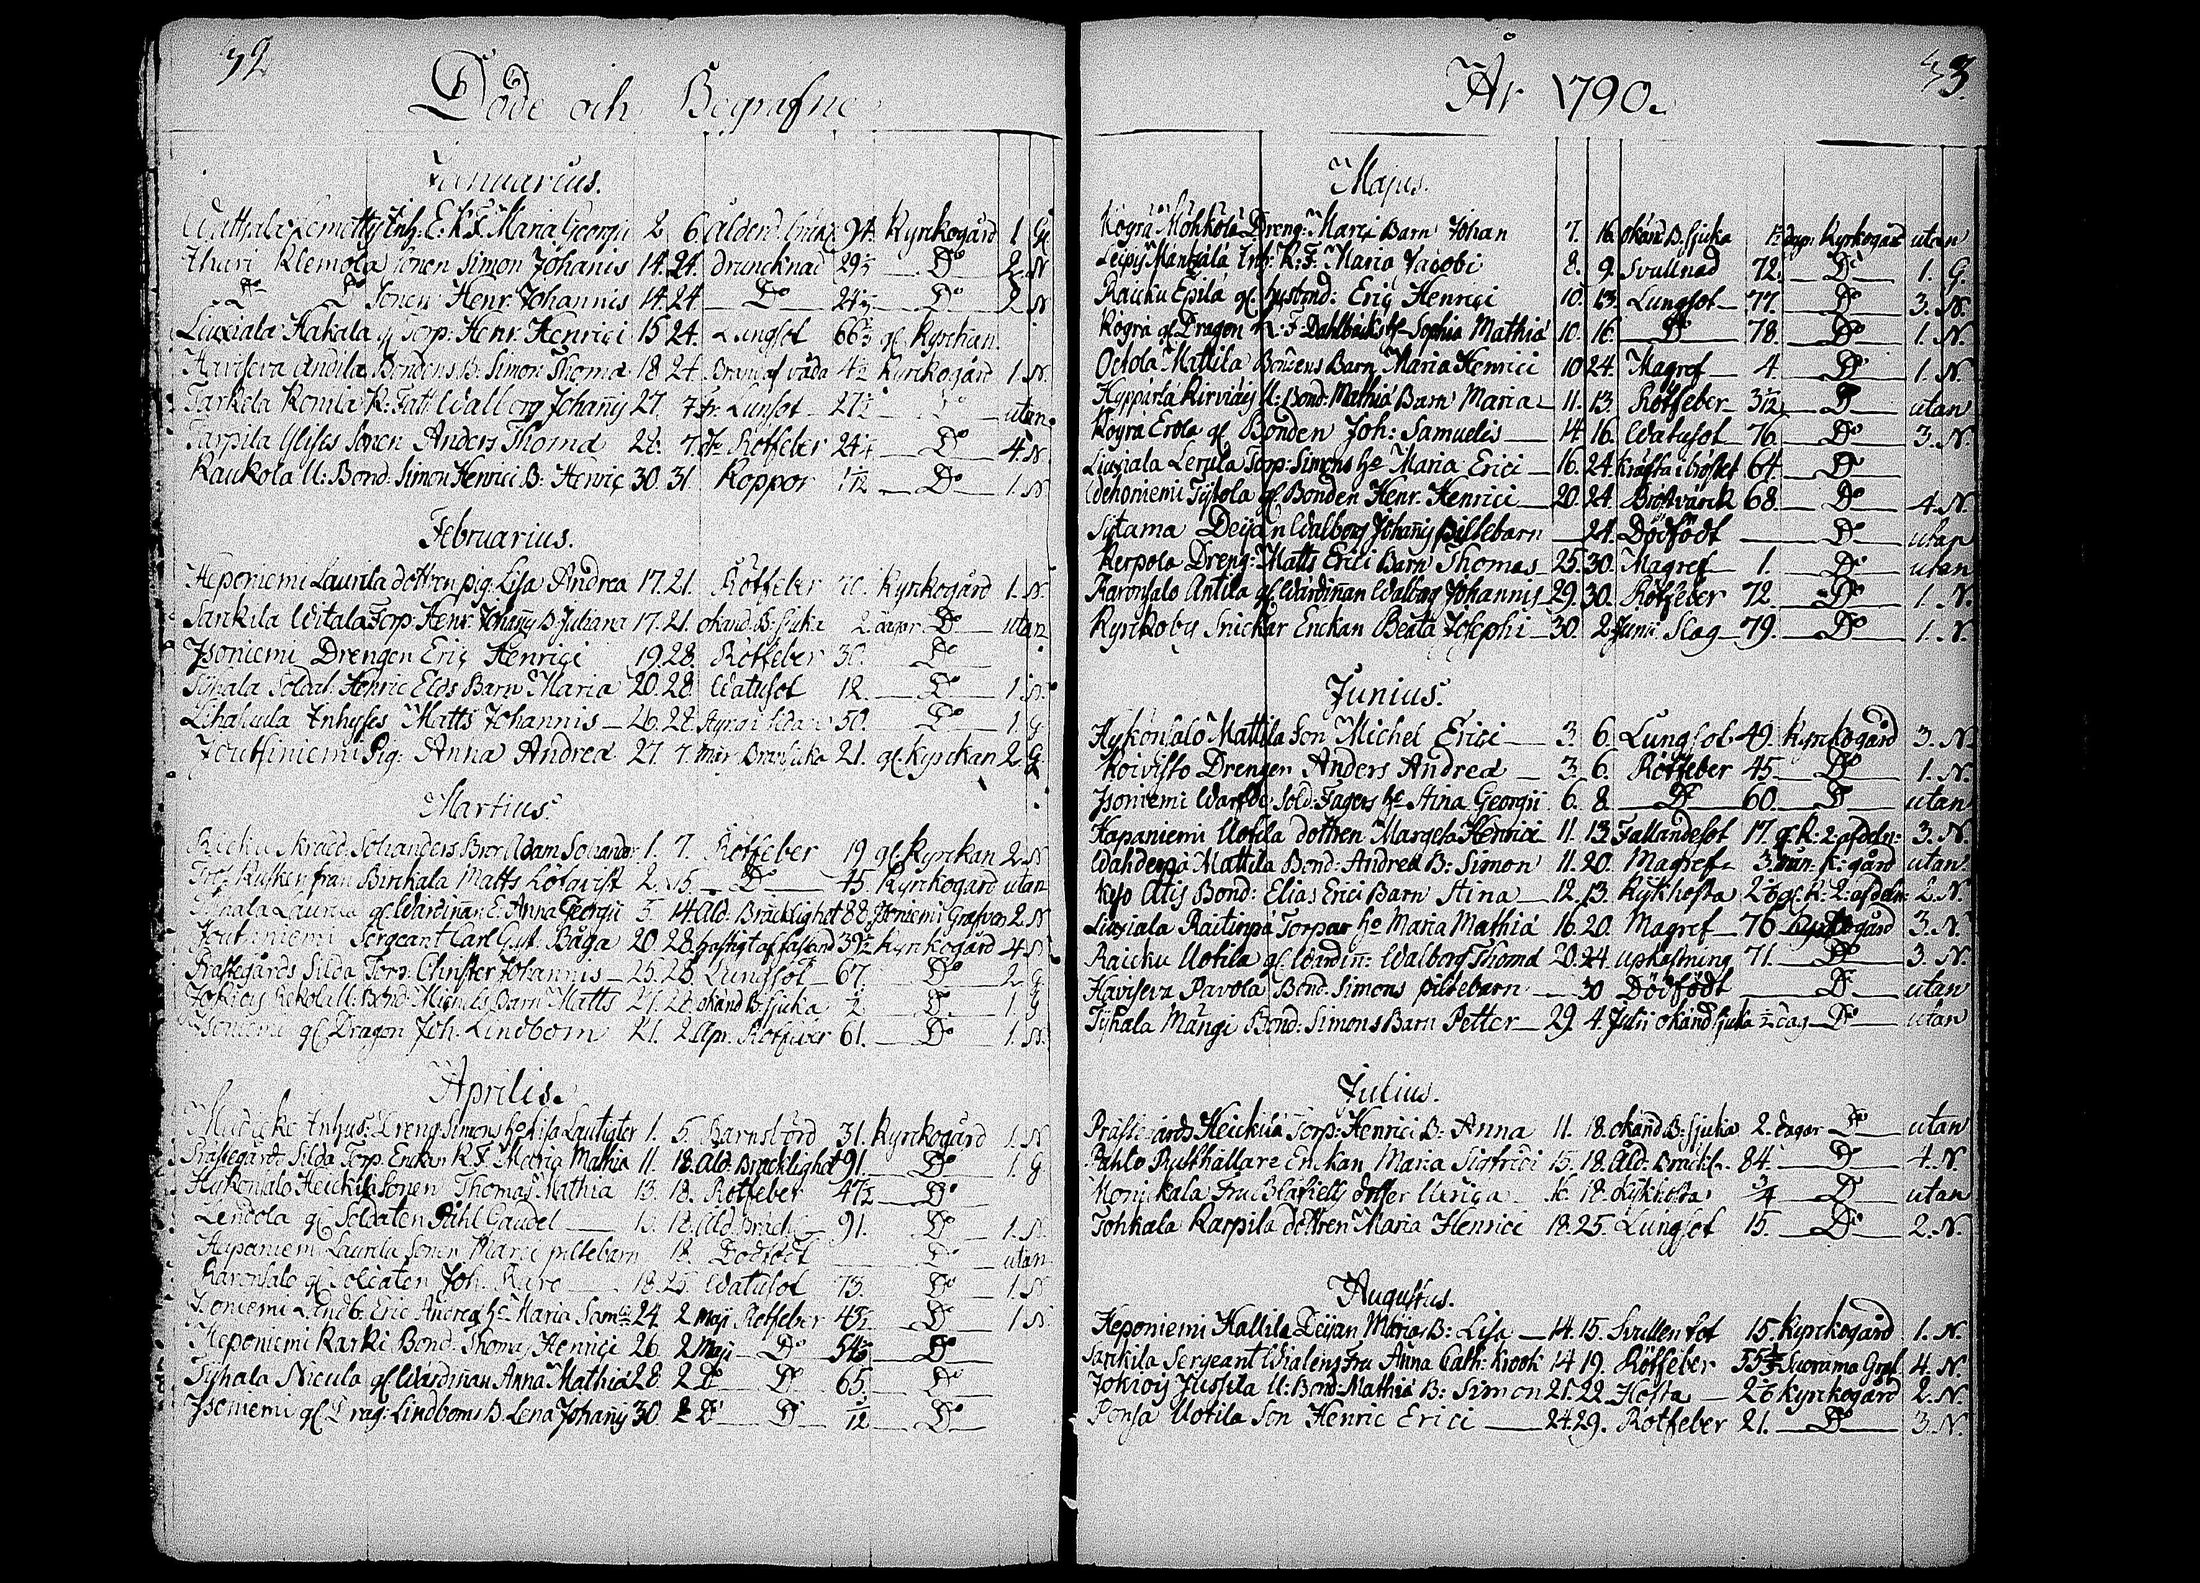 32
Döde och Begrafne
Januarius.
Lemetty Inh. E. K.F. Maria Georgii 2 6. Ålderd. 94. Kyrkogård 1. G
Thuri Klemola Sonen Simon Johanis 14. 24. druncknad 29½ D:o 2. N
D:o D:o Sonen Henr. Johannis 14. 24. D:o 24½ D:o 2 N
Liuxiala Hakala gl Torp: Henr. Henrici 15 24. Lungsot 66½ gl. Kyrckan
Haviseva Andila Bondens B. Simon Thomæ 18. 24. Brand af våda 4½ Kyrckogård 1. N.
Tarkela Romla K: Fatt. Walborg Johañis 27. 7 Fr. Lunsot 27½ D:o utan
Tarpila Ylises Sonen Anders Thomæ 28. 7. Fr. Rötfeber 24¼ D:o 4. N
Raukola U: Bond: Simon Henrici B: Henric 30. 31. Koppor 1/12 D:o 1. N
Februarius.
Heponiemi Laurila dottren pig. Lisa Andreæ 17. 21. Rötfeber Kyrkogård 1. N.
Sarkila Witala Torp: Henr. Johañis B: Juliana 17. 21. okänd B: Sjuka 2. dagar D:o utan
Isoniemi Drengen Eric Henrici 19. 28. Rötfeber 30. D:o
Tyhala Soldat Henric Elds Barn Maria 20. 28. Watusot 12. D:o 1. N.
Lihasula Inhyses Matts Johannis 26. 28. Styng i Sida 50. D:o 1. G
Joutsiniemi Pig: Anna Andreæ 27. 7. Mar: Bransjuka 21. gl. Kyrckan 2. G
Martius.
Raicku Skräd: Solanders Bror Adam Solander 1. 7. Rötfeber 19 gl. Kyrckan 2. N
Kusken från Birckala Matts Löfqvist 2. 15. D:o 45 Kyrckogård utan
Tyhala Laurila gl. Wärdiñan E: Anna Georgii 5. 14 Ald. Bräcklighet 88. Isoniemi Grafven 2. N
Joutsiniemi Sergeant Carl Gust. Båga 20. 28. hastigt af Slag 39½ Kyrckogård 4. N
Prästegårds Silda Torp: Christer Johannis 25. 28. Lungsot 67. D:o 2. G
Jokiois Kekola U: Bond: Michels Barn Matts 27. 28. okänd B: Sjuka ½ D:o 1. G
Isoniemi gl Dragon Joh. Lindbom 21. 2. Apr. Rötfeber 61. D:o 1. N.
Aprilis.
Inhys: Dreng Simons h:o Lisa 1. 5. Barnsbörd 31. Kyrckogård 1. N
Prästegårds Silda Torp. Enckan K F. Maria Mathiæ 11. 18. Ald. Bräcklighet 91. D:o 1. G
Hykönsalo Heickilä Sonen Thomas Mathiæ 13. 18. Rötfeber 47½ D:o
Lendola gl Soldaten Pihl Gabriel 13. 18. Ald. Bräckl. 91. D:o 1. N.
Haponiemi Laurila Sonen Marci piltebarn 18. Dödfödt D:o utan
Karonsalo gl Soldaten Joh. 18. 25. Watusot 73. D:o 1. N
Isoniemi Landb. Eric Andreæ h:o Maria Sam: 24. 2 Maji Rötfeber 43½ D:o 1 N
Heponiemi Karki Bond: Thomas Henrici 26. 2 Maji D:o 54½ D:o
Tyhala Nicula gl Wärdiñan Anna Mathiæ 28. 2 D:o D:o 65. D:o
Isoniemi gl Drag: Lindboms B. Lena Johañis 30 2 D:o D:o 1/12 D:o
33
År 1790.
Majus.
Kögrä Möhkölä Dreng: Marci Barn Johan 7. 16. okänd B. Sjuka 1½ dagr Kyrkogård utan
Leipis Mantzälä Inh: K: F: Maria Jacobi 8. 9. Svullnad 72. D:o 1. G.
Raicku Epila gl. husbond: Eric Henrici 10. 13. Lungsot 77. D:o 3. N.
Kögrä gl Dragon K: F Dahlbäcks h:o Sophia Mathiæ 10. 16. D:o 78. D:o 1. N.
Ochola Mattila Bondens Barn Maria Henrici 10 24. Magref 4 D:o 1. N.
Hyppärlä Kirviäis U: Bond: Mathiæ Barn Maria 11. 13. Rötfeber 3/12 D:o utan
Kögrä Erola gl Bonden Joh: Samuelis 14. 16. Watusot 76. D:o 3. N.
Liuxiala Lerula Torp: Simons h:o Maria Erici 16. 24. Kräfta i bröstet 64. D:o
Wehoniemi Tystola gl Bonden Henr. Henrici 20. 24. Bröstvärck 68. D:o 4. N.
Sytama Deijan Walborg Johañis Piltebarn 24. Dödfödt D:o utan
Kerpola Dreng: Matts Erici Barn Thomas 25. 30. Magref 1. D:o utan
Karonsalo Antila gl Wärdiñan Walborg Johannis 29. 30. Rötfeber 72. D:o 1. N.
Kyrckoby Snickar Enckan Beata Josephi 30. 2. Junii Slag 79. D:o 1. N.
Junius.
Hykönsalo Mattila Son Michel Erici 3. 6. Lungsot 49. Kyrckogård 3. N.
Koivisto Drengen Anders Andreæ 3. 6. Rötfeber 45. D:o 1. N.
Isoniemi Sold: Fagers h:o Stina Georgii 6. 8 D:o 60. D:o utan
Hapaniemi Uotila dottren Margeta Henrici 11. 13 Fallandesot 17. gl. K: 2: afdeln: 3. N.
Wähdenpä Mattila Bond: Andreæ B: Simon 11. 20. Magref 3. mån. K: gård utan
Kyso Atis Bond: Elias Erici Barn Stina 12. 13. Kijkhosta 2 1/6 gl. K. 2. afdeln: 2. N.
Liuxiala Raitinpä Torpar h:o Maria Mathiæ 16. 20. Magref 76 Kyrckogård 3. N.
Raicku Uotila gl Wärdin: Walborg Thomæ 20. 24. upkastning 71. D:o 3. N.
Haviseva Pavola Bond: Simons piltebarn 30 Dödfödt D:o utan
Tyhala Mangi Bond: Simons Barn Petter 29. 4. Julii okänd Sjuka ½ dag D:o utan
Julius.
Prästegårds Heickilä Torp: Henrici B: Anna 11. 18. okänd B: Sjuka 2. dagar D:o utan
Pahlo Rusthållare Enckan Maria Sigfridi 15. 18. Ald: Bräckl. 84. D:o 4. N.
Monjkala Fru Blåfields dotter Ulrica 16. 18. Kijkhosta 3/4 D:o utan
Tohkala Karpila dottren Maria Henrici 18. 25. Lungsot 15. D:o 2. N.
Augustus.
Heponiemi Kallila Deijan Marias B: Lisa 14. 15. Svullen sot 15. Kyrckogård 1. N.
Sarkila Sergeant Wialens Fru Anna Cath: Krook 14 19. Rötfeber 55 Suorama Graf 4. N.
Jokiois Jussila U: Bond: Mathiæ B: Simon 21. 22 Hosta 2 1/6 Kyrckogård 2. N.
Ponsa Uotila Son Henric Erici 24. 29. Rötfeber 21. D:o 3. N.